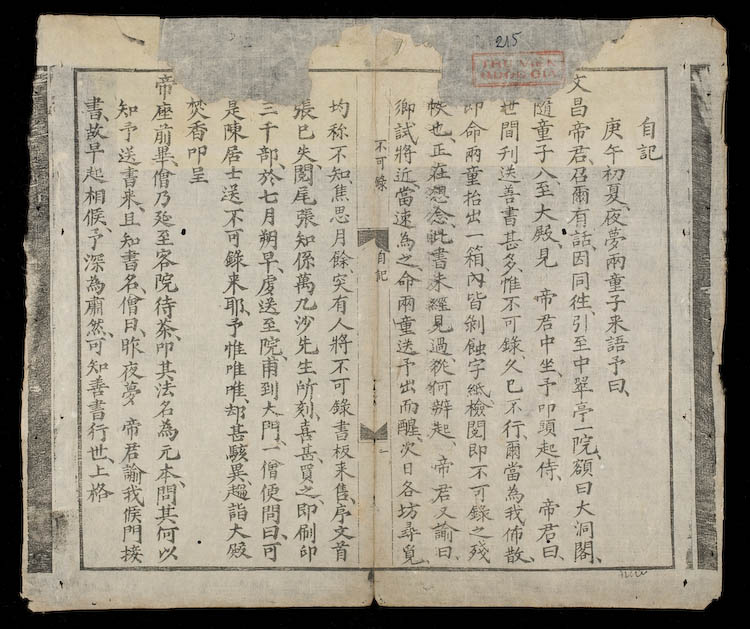 215
THƯ VIỆN
QUỐC GIA
自記
庚午初夏、夜夢兩童子来語予曰、
文昌帝君、召爾有話、因同徃、引至中翠亭一院、額曰大洞閣、
隨童子入至大殿、見 帝君中坐、予叩頭起侍、 帝君曰、
世間刊送善書甚多、惟不可錄、久已不行、爾當為我佈散、
即命兩童抬出一箱、內皆剝蝕字紙、檢閱即不可錄之殘
帙也、正在想念、此書未經見過、從何辦起、 帝君又諭曰、
鄉試將近、當速為之、命兩童送予出而醒、次日各坊尋覓、
不可錄
自記
一
均称不知、焦思月餘、突有人將不可錄書板来售、序文首
張已失、閱尾張、知係萬九沙先生所刻、喜甚買之、即刷印
三千部、於七月朔早、虔送至院、甫到大門、一僧便問曰、可
是陳居士送不可錄来耶、予惟唯唯、却甚駭異、趨詣大殿
焚香叩呈
帝座前畢、僧乃延至客院待茶、叩其法名為元本、問其何以
知予送書来、且知書名、僧曰、昨夜夢 帝君諭我候門接
書、故早起相候、予深為肅然、可知善書行世、上格